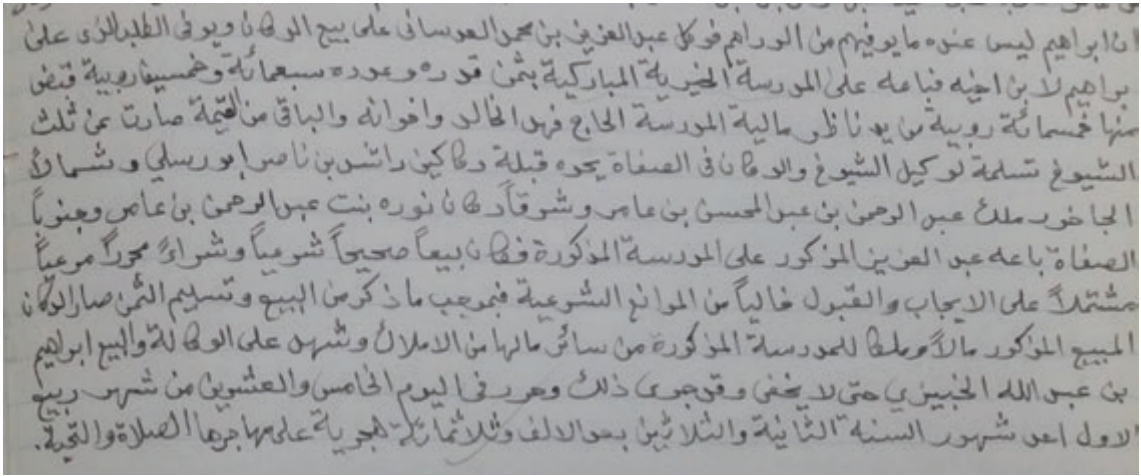 ان ابراهيم ليس عنده ما يوفيهم من الدراهم فوكل عبدالعزيز بن محمد العدساني على بيع الدكان ويوفى الطلب الذى على
براهيم لابن اخيه فباعه على المدرسة الخيرية المباركية بثمن قدره وعدده سبعمائة وخمسين روبية قبض
منها خمسمائة روبية من يد ناظر مالية المدرسة الحاج فهد الخالد واخوانه والباقى من القيمة صارت عن ثلث
الشيوخ تسلمة لوكيل الشيوخ والدكان فى الصفاة يحده قبلة دكاكين راشد بن ناصر ابورسلي وشمالاً
الجاخور ملك عبد الرحمن بن عبد المحسن بن عامر وشرقاً دكان نوره بنت عبدالرحمن بن عامر وجنوباً
الصفاة باعه عبد العزيز المذكور على المدرسة المذكورة فكان بيعاً صحيحاً شرعياً وشراءً محرراً مرعياً
مشتملاً على الايجاب والقبول خالياً من الموانع الشرعية فبموجب ما ذكر من البيع وتسليم الثمن صار الدكان
المبيع المذكور مالاً وملكا للمدرسة المذكورة من سائر مالها من الاملاك وشهد على الوكالة والبيع ابراهيم
بن عبد الله الخبيزي حتى لا يخفى وقد جرى ذلك وحرر فى اليوم الخامس والعشرين من شهر ربيع
الاول احد شهور السنة الثانية والثلاثين بعد الالف وثلاثمائة هجرية على مهاجرها الصلاة والتحية.